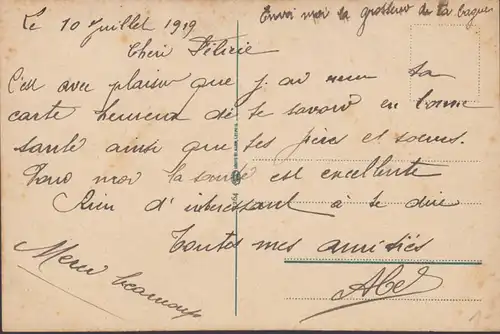 Envoi moi la grosseur de ta bague
Le 10 Juillet 1919
Cheri Félicie
C'est avec plaisir que j. ai reçu ta
carte heureux de te savoir en bonne
santé ainsi que tes frères et soeurs.
Pour moi la santé est excellente
Rien d'interessant à te dire
Toutes mes amitiés
Abel
Merci beaucoup